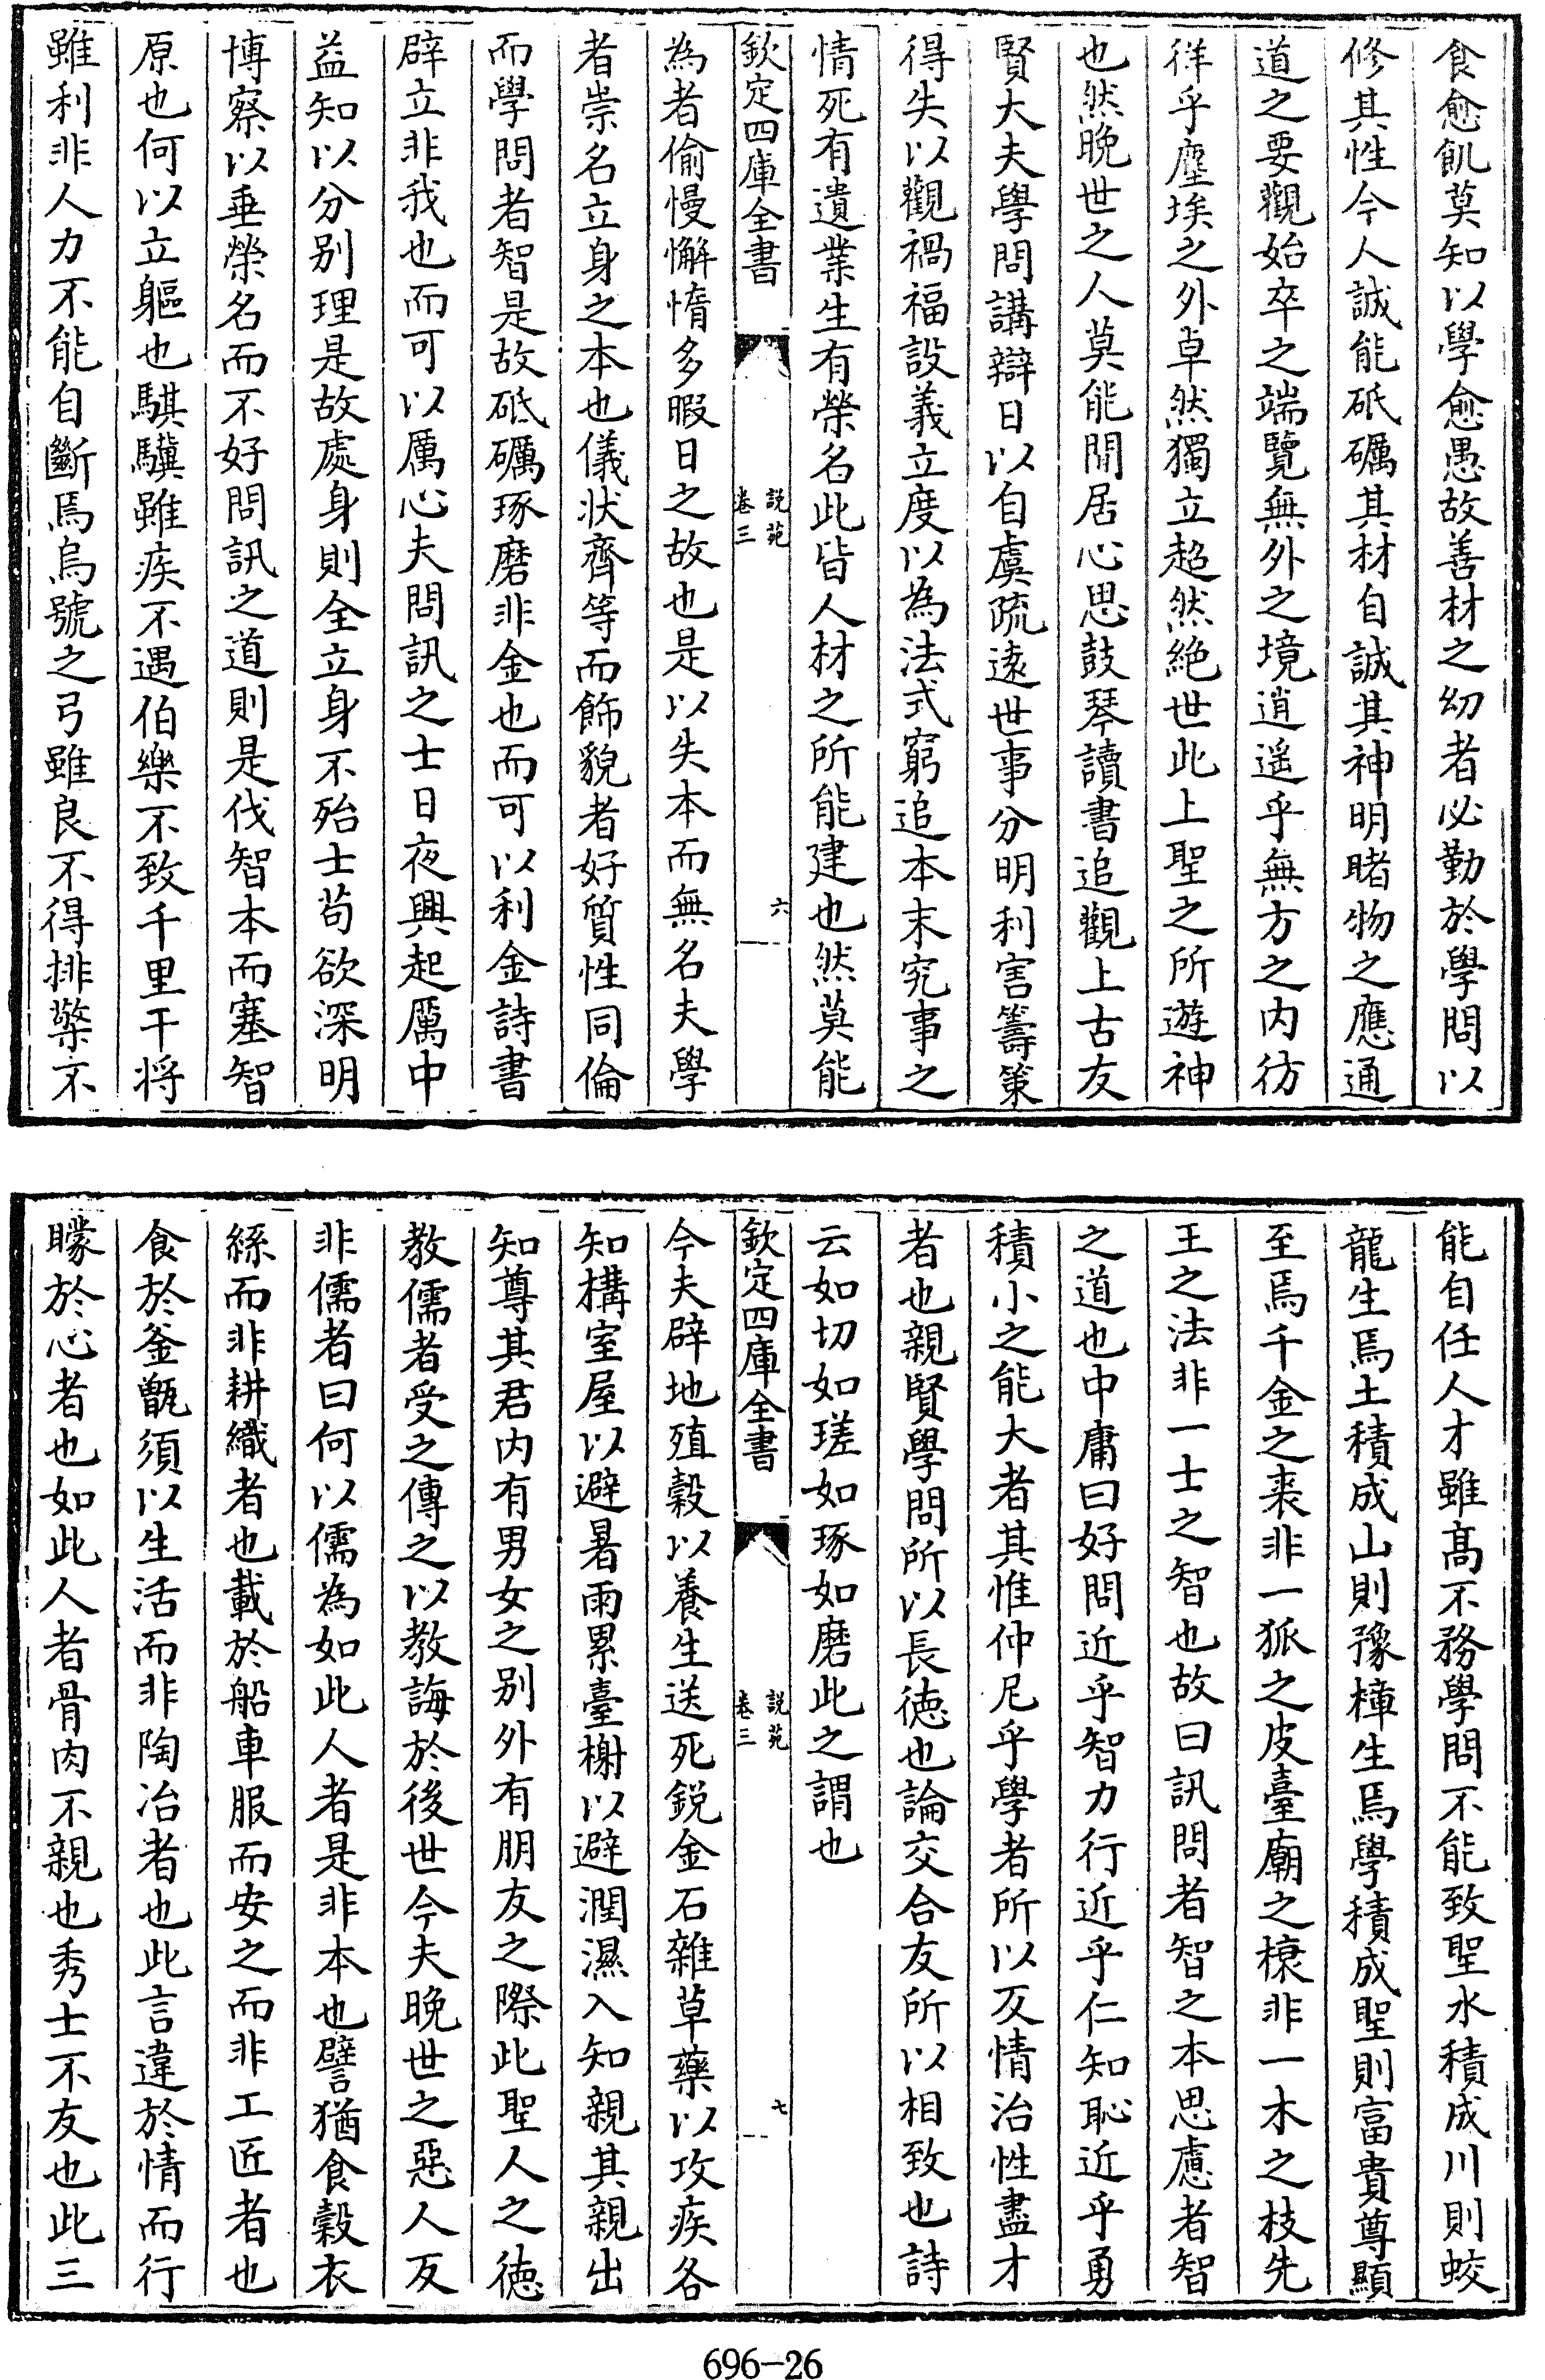 食愈飢莫知以學愈愚故善材之幼者必勤於學問以
修其性今人誠能砥礪其材自誠其神明睹物之應通
道之要觀始卒之端覽無外之境逍遥乎無方之内彷
徉乎塵埃之外卓然獨立超然絶世此上聖之所遊神
也然晚世之人莫能閒居心思鼓琴讀書追觀上古友
賢大夫學問講辯日以自虞疏遠世事分明利害籌策
得失以觀禍福設義立度以為法式窮追本末究事之
情死有遺業生有榮名此皆人材之所能建也然莫能
欽定四庫全書
說苑
卷三
六
為者偷慢懈惰多暇日之故也是以失本而無名夫學
者崇名立身之本也儀状齊等而飾貌者好質性同倫
而學問者智是故砥礪琢磨非金也而可以利金詩書
辟立非我也而可以厲心夫問訊之士日夜興起厲中
益知以分别理是故處身則全立身不殆士苟欲深明
博察以垂榮名而不好問訊之道則是伐智本而塞智
原也何以立軀也騏驥雖疾不遇伯樂不致千里干将
雖利非人力不能自斷焉烏號之弓雖良不得排檠不
能自任人才雖髙不務學問不能致聖水積成川則蛟
龍生焉土積成山則豫樟生焉學積成聖則富貴尊顯
至焉千金之裘非一狐之皮臺廟之榱非一木之枝先
王之法非一士之智也故曰訊問者智之本思慮者智
之道也中庸曰好問近乎智力行近乎仁知恥近乎勇
積小之能大者其惟仲尼乎學者所以反情治性盡才
者也親賢學問所以長徳也論交合友所以相致也詩
云如切如瑳如琢如磨此之謂也
欽定四庫全書
說苑
卷三
七
今夫辟地殖穀以養生送死鋭金石雜草藥以攻疾各
知構室屋以避暑雨累臺榭以避潤濕入知親其親出
知尊其君内有男女之别外有朋友之際此聖人之徳
教儒者受之傳之以教誨於後世今夫晚世之惡人反
非儒者曰何以儒為如此人者是非本也譬猶食穀衣
絲而非耕織者也載於船車服而安之而非工匠者也
食於釜甑須以生活而非陶冶者也此言違於情而行
矇於心者也如此人者骨肉不親也秀士不友也此三
696-26